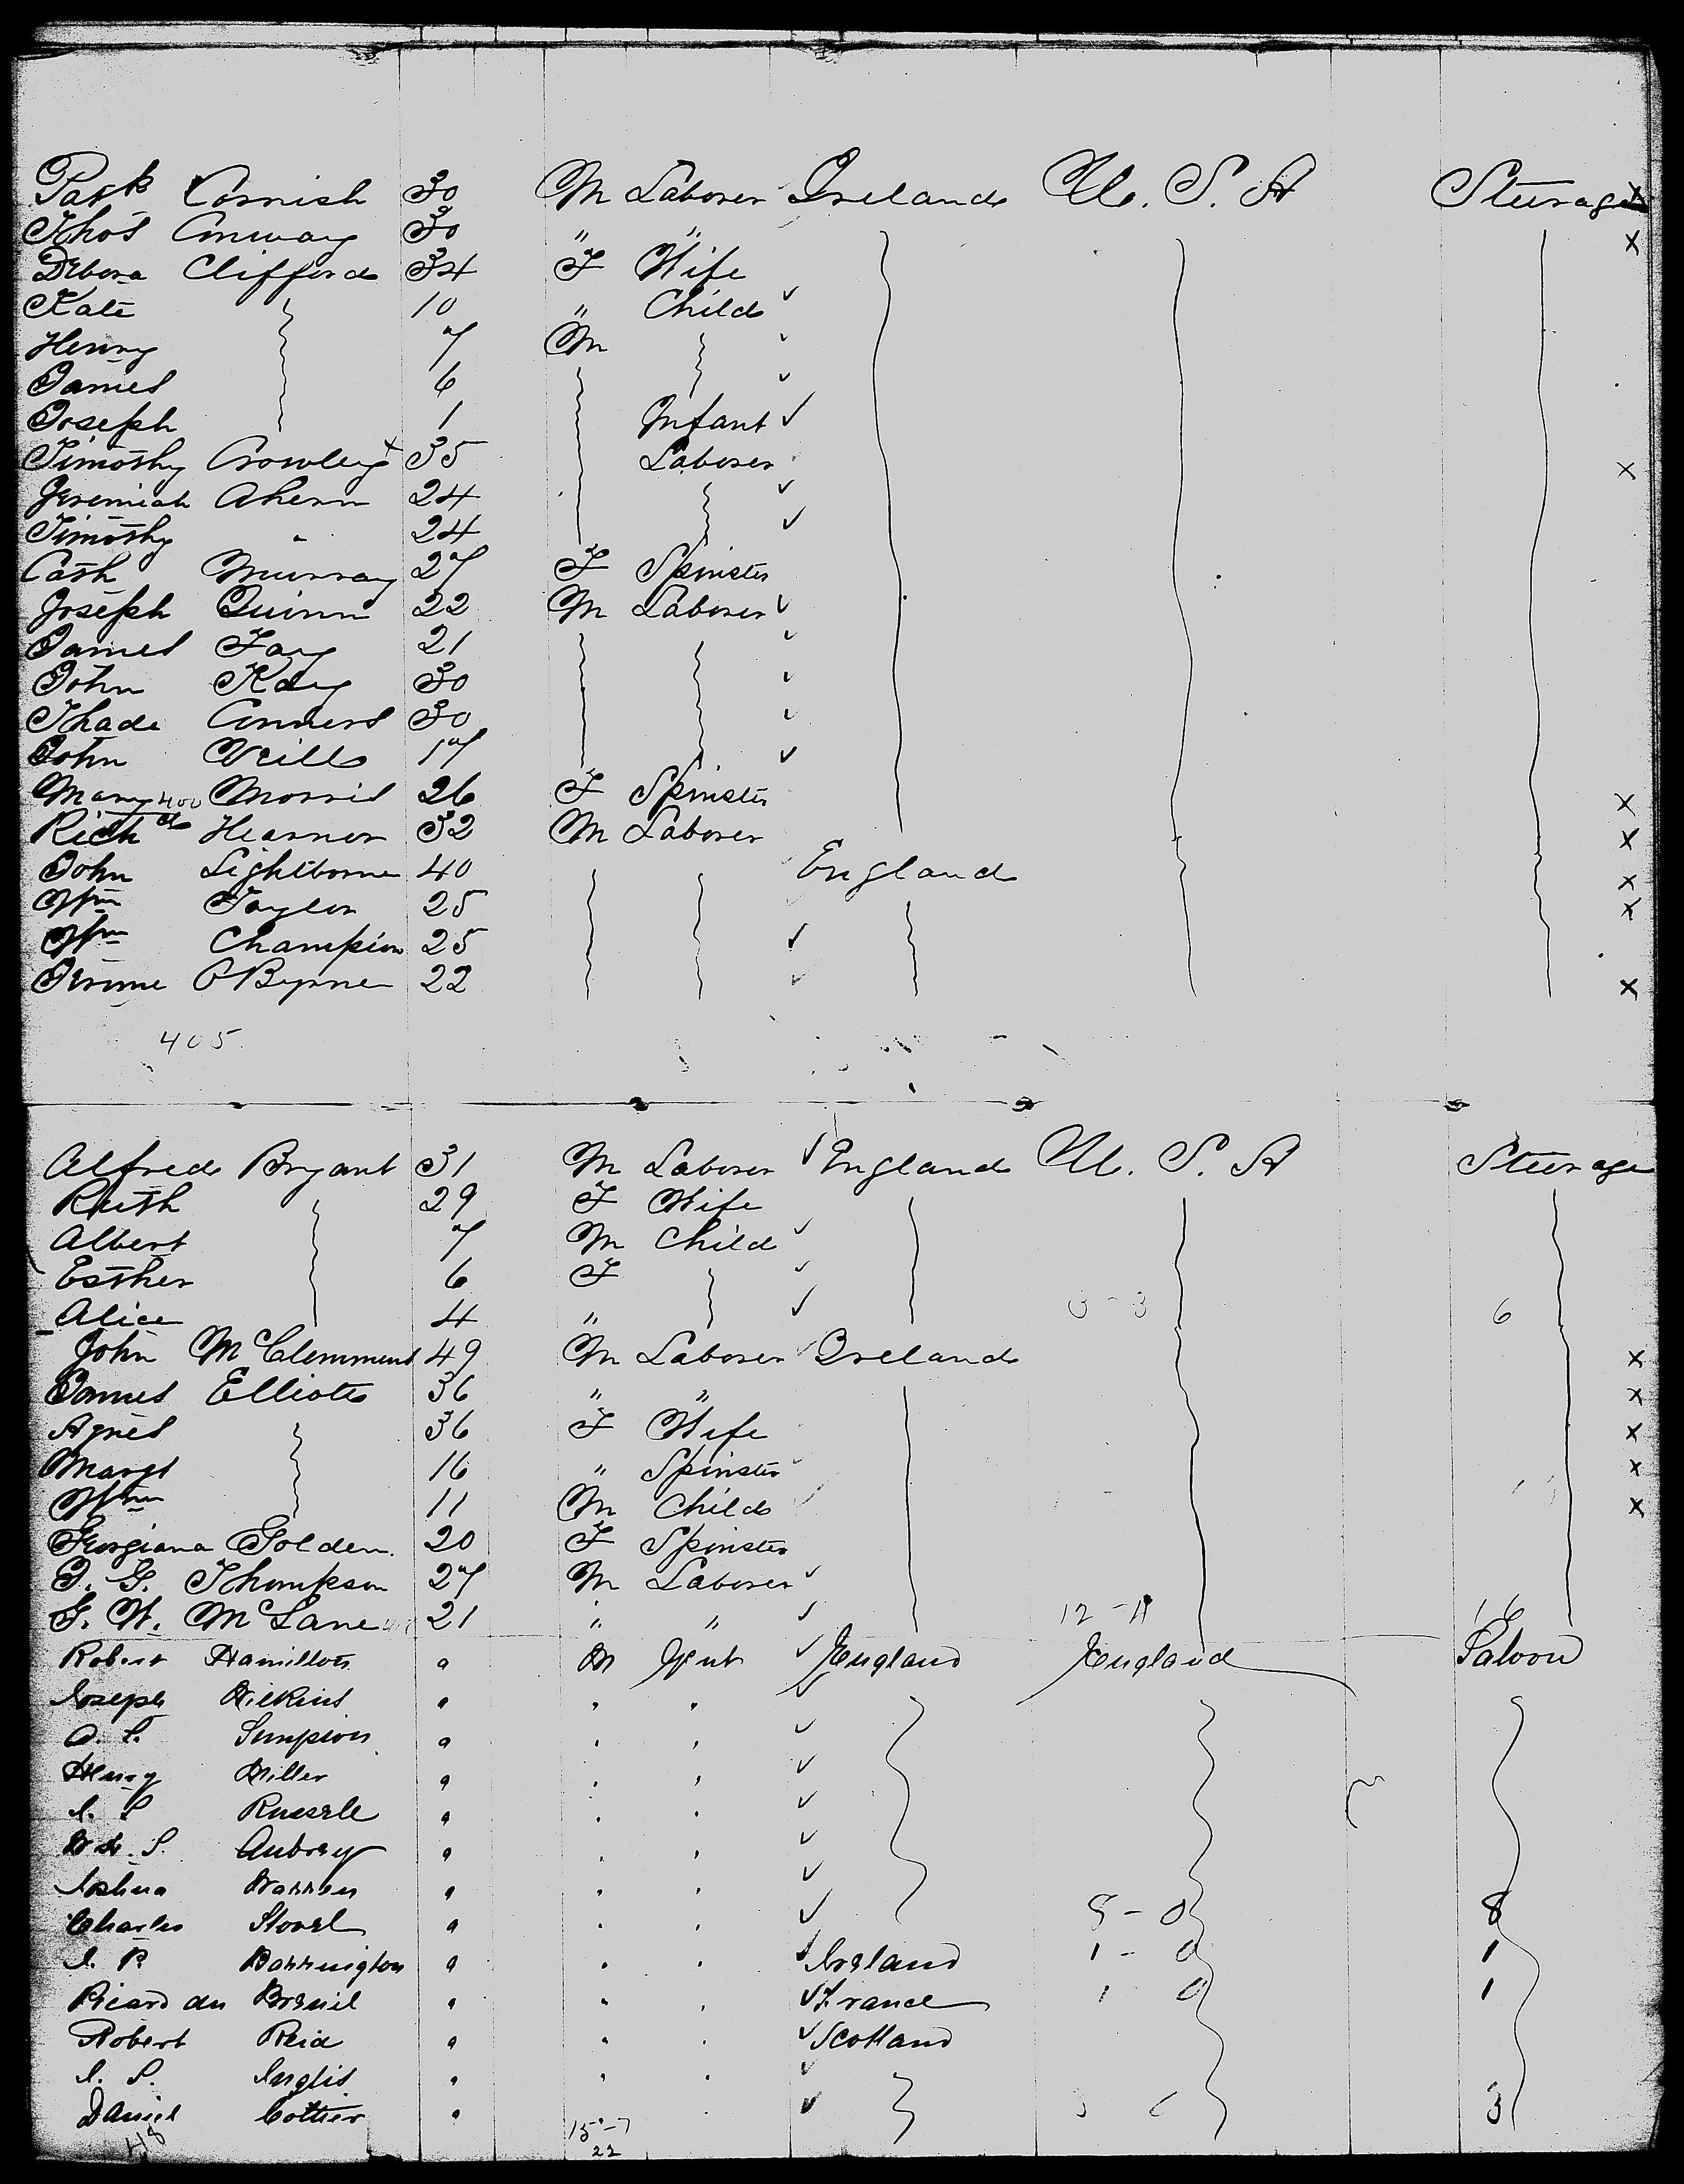 Patk Cornish 30 M Laborer Ireland U. S. A Steerage x
Thos Conway 30 " " x
Debora Clifford 34 F Wife
Kate 10 " Child ✓
Henry 7 M ✓
James 6 ✓
Joseph 1 Infant ✓
Timothy Crowley x 35 Laborer x
Jeremiah Ahern 24 ✓
Timothy " 24 ✓
Cath Murray 27 F Spinster
Joseph Quinn 22 M Laborer ✓
James Fay 21 ✓
John Kay 30 ✓
Thade Conners 30 ✓
John Neill 17 ✓
Mary 400 Morris 26 F Spinster x
Richd Hearnor 32 M Laborer x
John Lightborne 40 England x
Wm Taylor 25 x
Wm Champion 25 ✓
Jerome O'Byrne 22 ✓ x
405
Alfred Bryant 31 M Laborer ✓ England U. S. A Steerage
Ruth 29 F Wife
Albert 7 M Child ✓
Esther 6 F ✓
Alice 4 " ✓ 6
John McClemment 49 M Laborer ✓ Ireland x
James Elliott 36 " " x
Agnes 36 F Wife x
Margt 16 " Spinster x
Wm 11 M Child x
Georgiana Golden 20 F Spinster
J. G. Thompson 27 M Laborer ✓
G. W. McLane 21 " " ✓ 12 - 11
Robert Hamilton " M Gent ✓ England England Saloon
Joseph Wilkins " " " ✓
Simpson " " " ✓
Henry Miller " " " ✓
J. S Russell " " " ✓
S. Aubrey " " " ✓
Joshua Warren " " " ✓
Charles Stovel " " " ✓ 8 - 0 8
J. P. Barrington " " " ✓ Ireland 1 - 0 1
Ricard du Breuil " " " ✓ France 1 0 1
Robert Reid " " " ✓ Scotland
J. S. Inglis " " " ✓
Daniel Cottier " ✓ 3
418 15-7
22